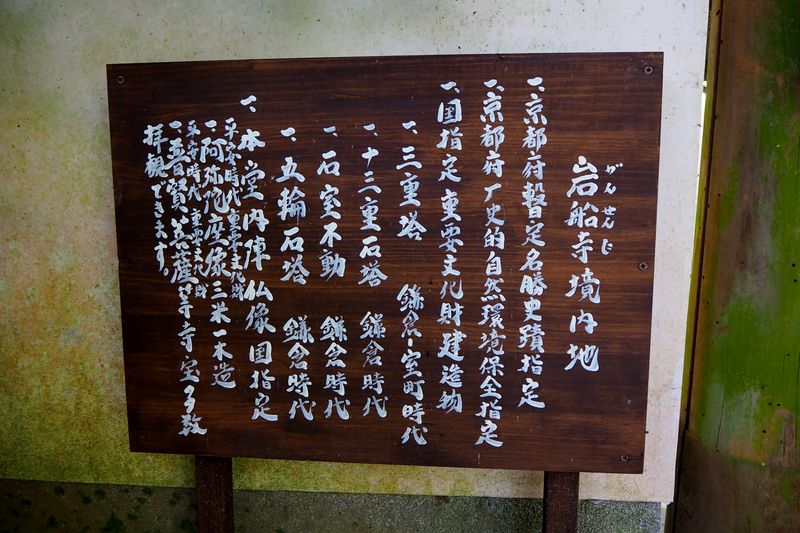 がんせんじ
岩船寺境内地
一、京都府暫定名勝史蹟指定
一、京都府歴史的自然環境保全指定
一、国指定重要文化財建造物
一、三重塔 鎌倉・室町時代
一、十三重石塔 鎌倉時代
一、石室不動 鎌倉時代
一、五輪石塔 鎌倉時代
一、本堂内陣仏像国指定
平安時代 重要文化財
一、阿弥陀座像三米一木造
平安時代 重要文化財
一、普賢菩薩等寺宝多数
拝観できます。